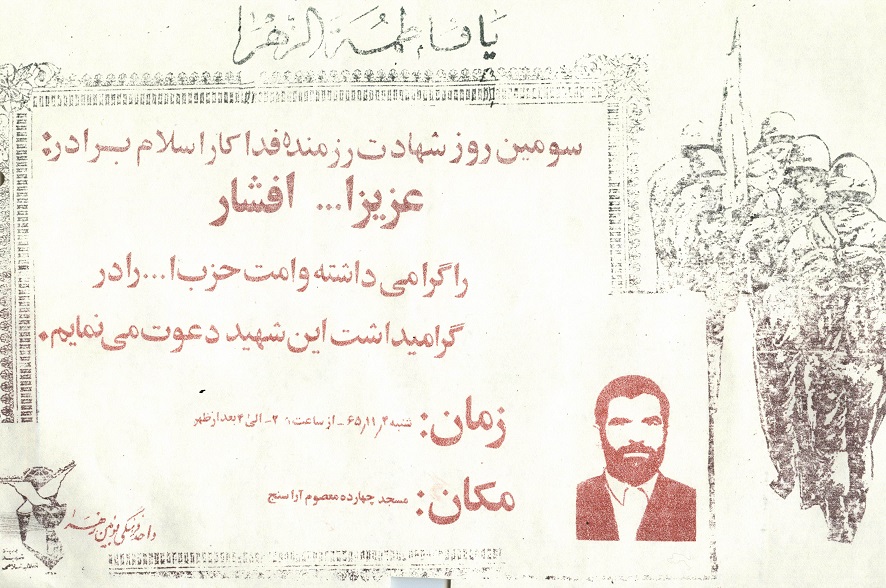 یا فاطمة الزهرا
سومین روز شهادت رزمنده فداکار اسلام برادر:
عزیزا... افشار
را گرامی داشته و امت حزب ا... را در
گرامیداشت این شهید دعوت می نمایم.
زمان: شنبه ۶۵/۱۱/۴ - از ساعت ۲ - الی ۴ بعد از ظهر
مکان: مسجد چهارده معصوم آراسنج
واحد فرهنگی بوئین زهرا